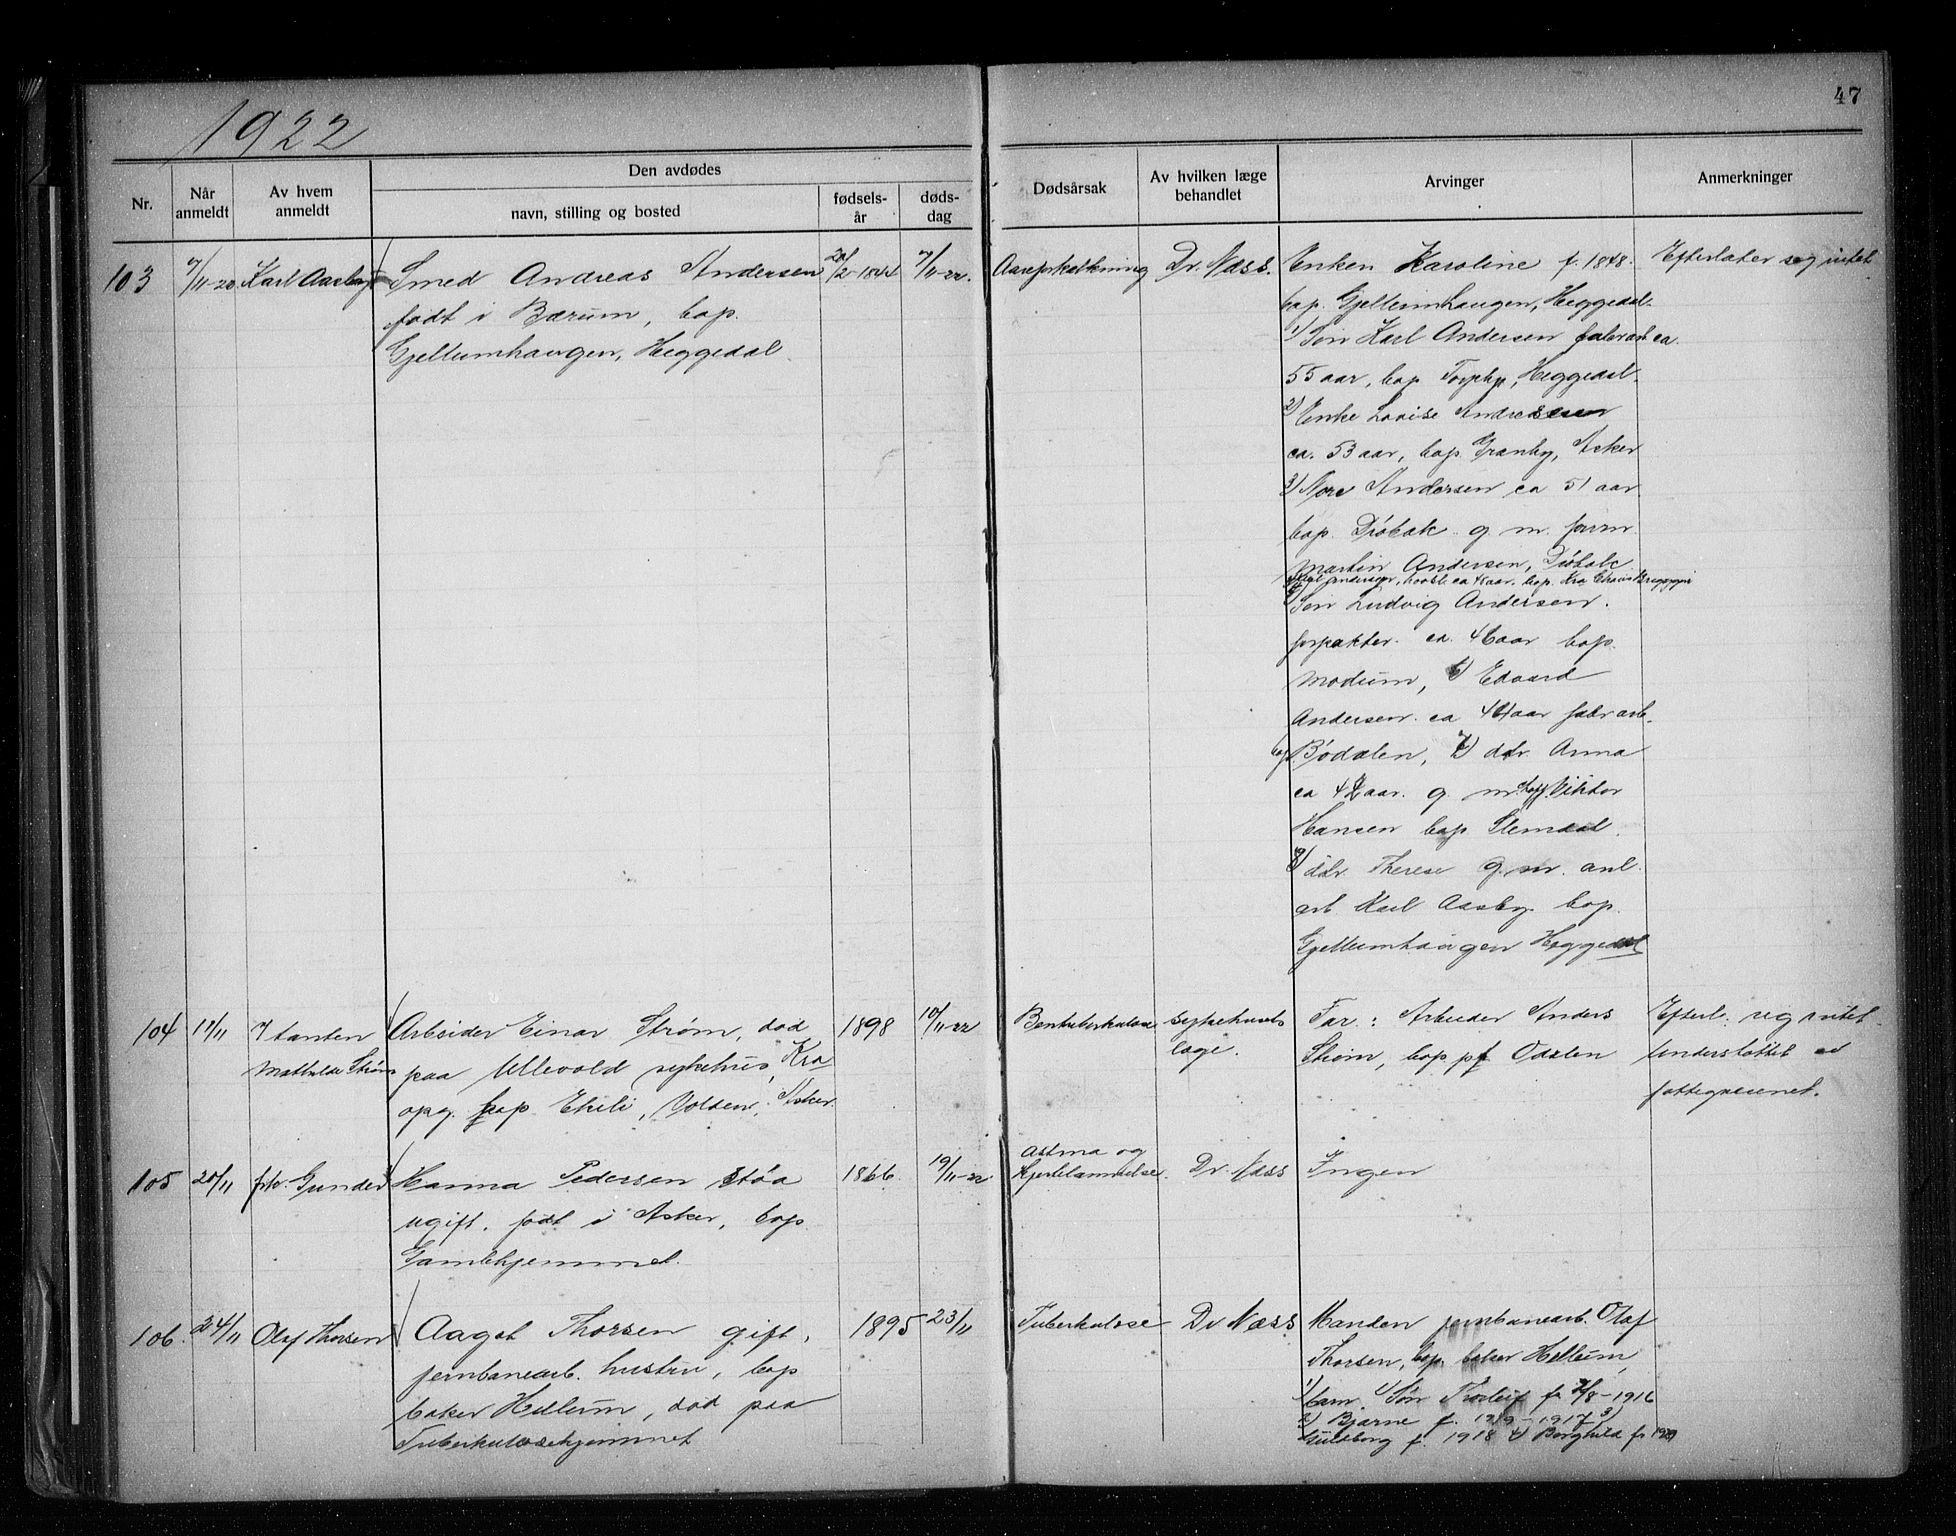 1922
47
Nr.
Når anmeldt
Av hvem anmeldt
Den avdødes
navn, stilling og bosted
fødsels-år
døds-dag
Dødsårsak
Av hvilken læge behandlet
Arvinger
Anmerkninger
103
Karl Aasby
Smed Andreas Andersen
født i Bærum, bop.
Gjellumhaugen, Heggedal.
7/11-22.
Aareforkalkning
Dr. Næss.
Enken Karoline f. 1848.
bop. Gjellumhaugen, Heggedal.
1) Søn Karl Andersen ca.
55 aar, bop. Heggedal.
2) Enke Lovise Andresen
ca. 53 aar, bop. Granby, Asker
3) Andersen ca 51 aar
bop. Drøbak g. m.
Martin Andersen, Drøbak
Søn Ludvig Andersen.
forpakter. ca. 46 aar bop.
Modum, 6) Edvard
Andersen. ca 44 aar fabr arb.
bop Bødalen, 7) dtr. Anna
ca 42 aar. g. m. Viktor
Hansen bop Slemdal.
8) dtr. Therese g. m. anl.
arb Karl Aasby. bop.
Gjellumhaugen Heggedal
Efterlater seg intet
104
17/11
Tanten
Mathilde Strøm
Arbeider Einar Strøm, død
paa Ullevold sykehus, Kra
opg. bop. Ekeli, Volden, Asker.
1898
Bentuberkulose
sykehusets
læge.
Far: Arbeider Anders
Strøm, bop. Odalen
Efterl. seg intet.
Understøttet av
fattigvesenet.
105
20/11
frk. Gunder
Hanna Pedersen Støa
ugift, født i Asker, bop
Gamlehjemmet.
1866.
19/11-22
Astma og
Hjertelammelse.
Dr. Næss
Ingen
106.
24/11
Olaf Thorsen
Aagot Thorsen gift,
jernbanearb. hustru, bop
baker Hellum, død paa
Tuberkulosehjemmet
1895
23/11
Tuberkulose
Dr Næss
Manden jernbanearb. Olaf
Thorsen, bop. baker Hellum,
barn. 1) Søn Thorleif f. 7/8-1916
2) Bjarne f. 1917 3)
Guldborg f. 1918 4) Borghild f.